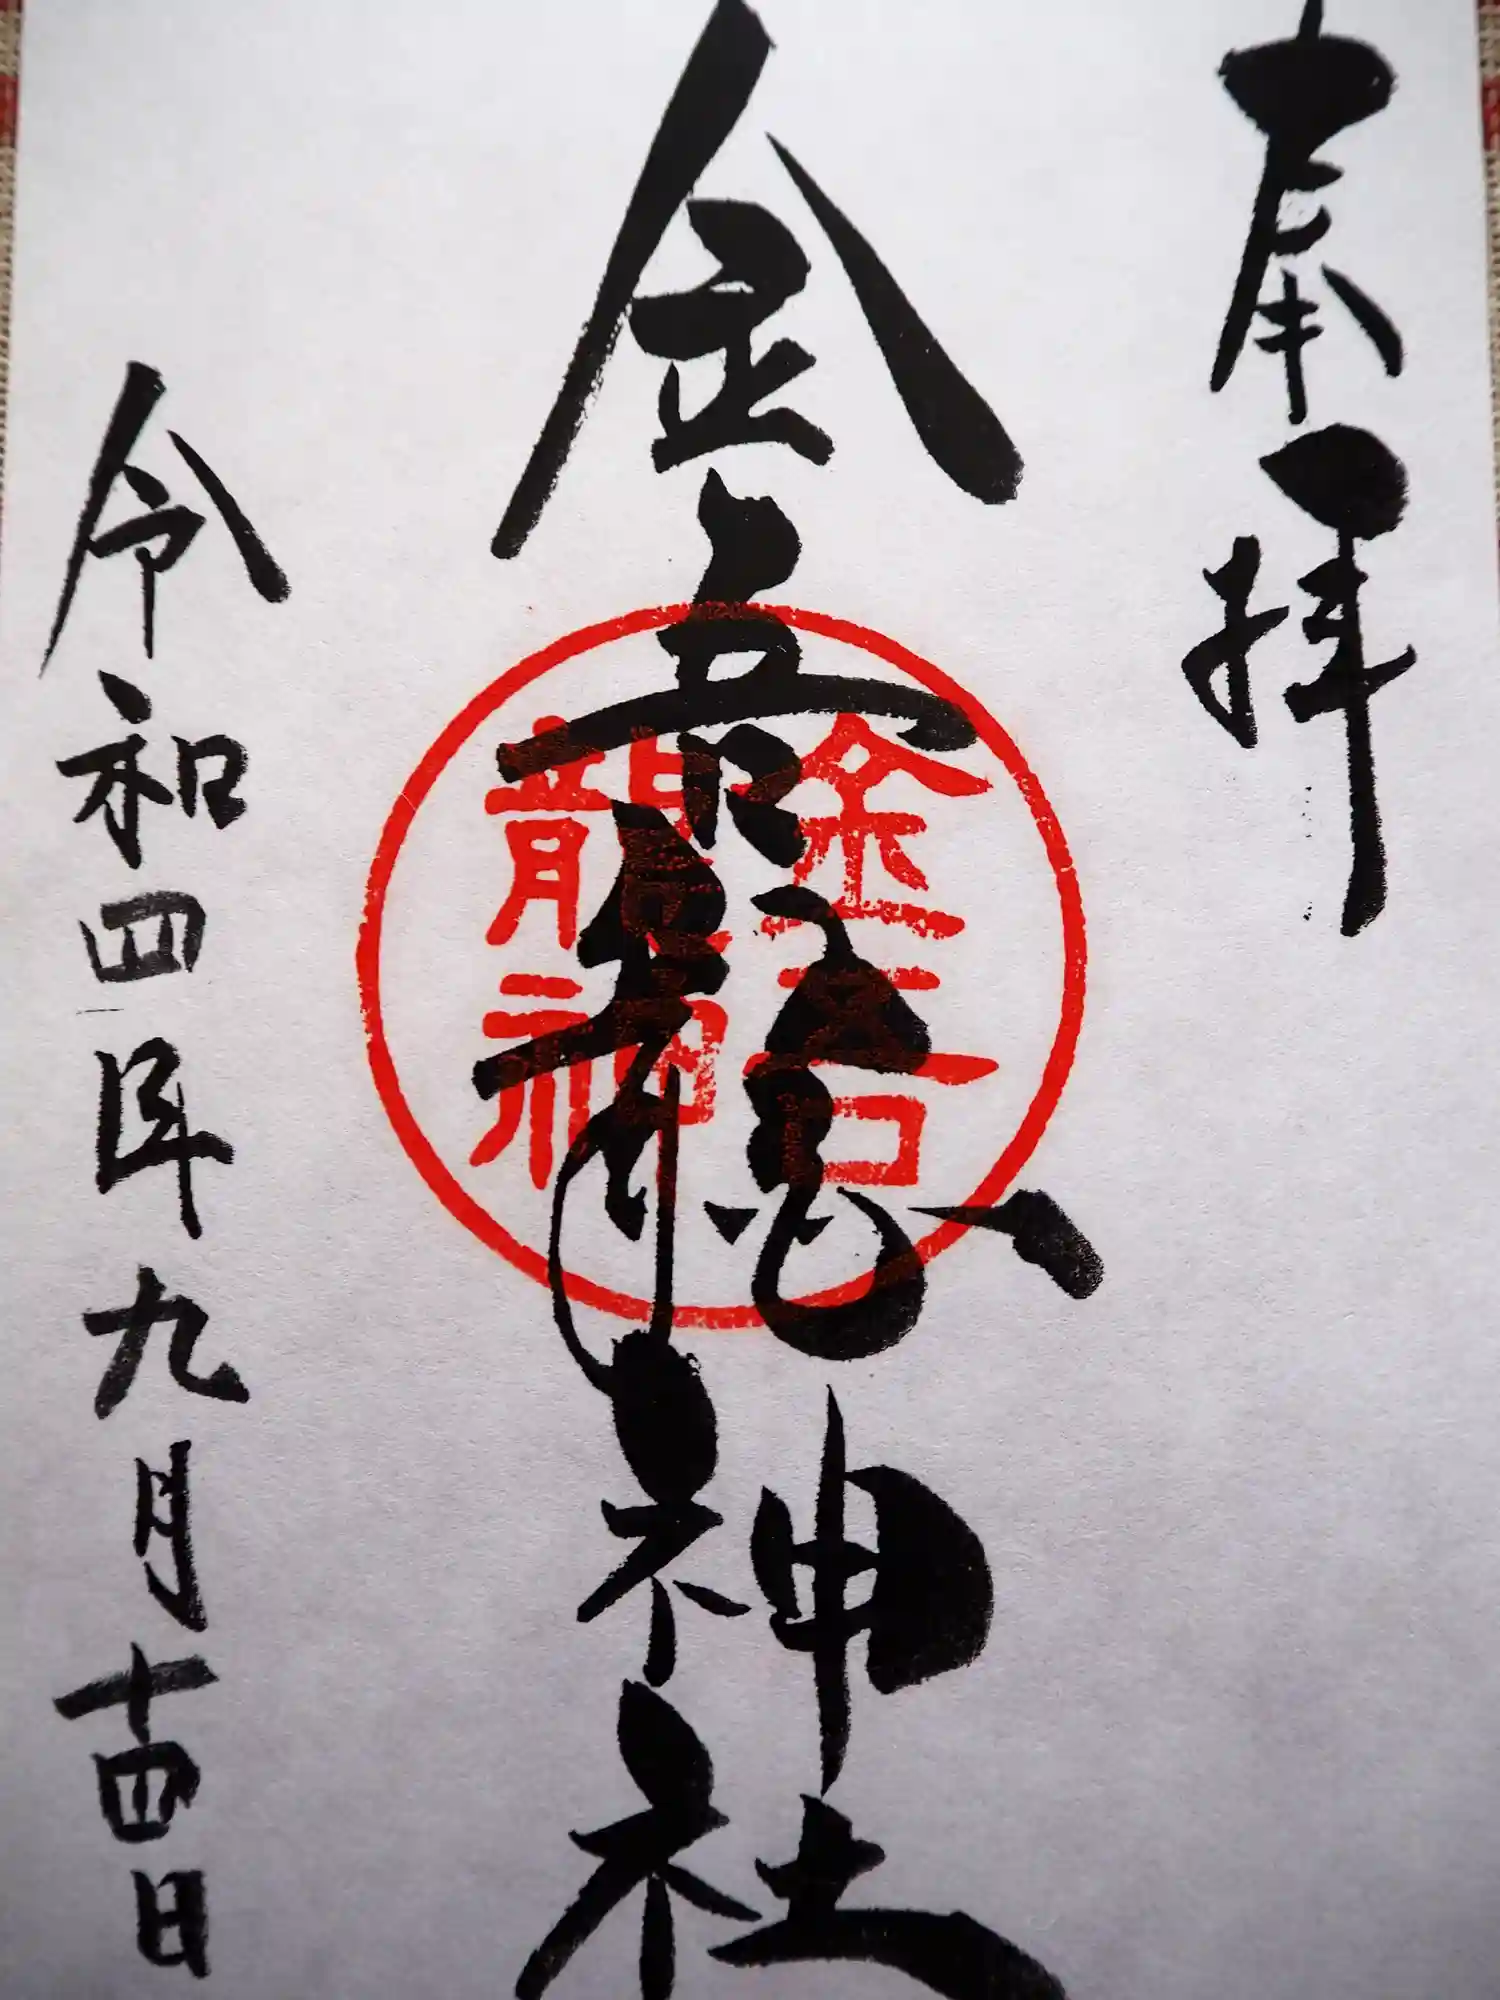 奉拝
金吾龍神社
金吾
龍神
令和四年九月十四日